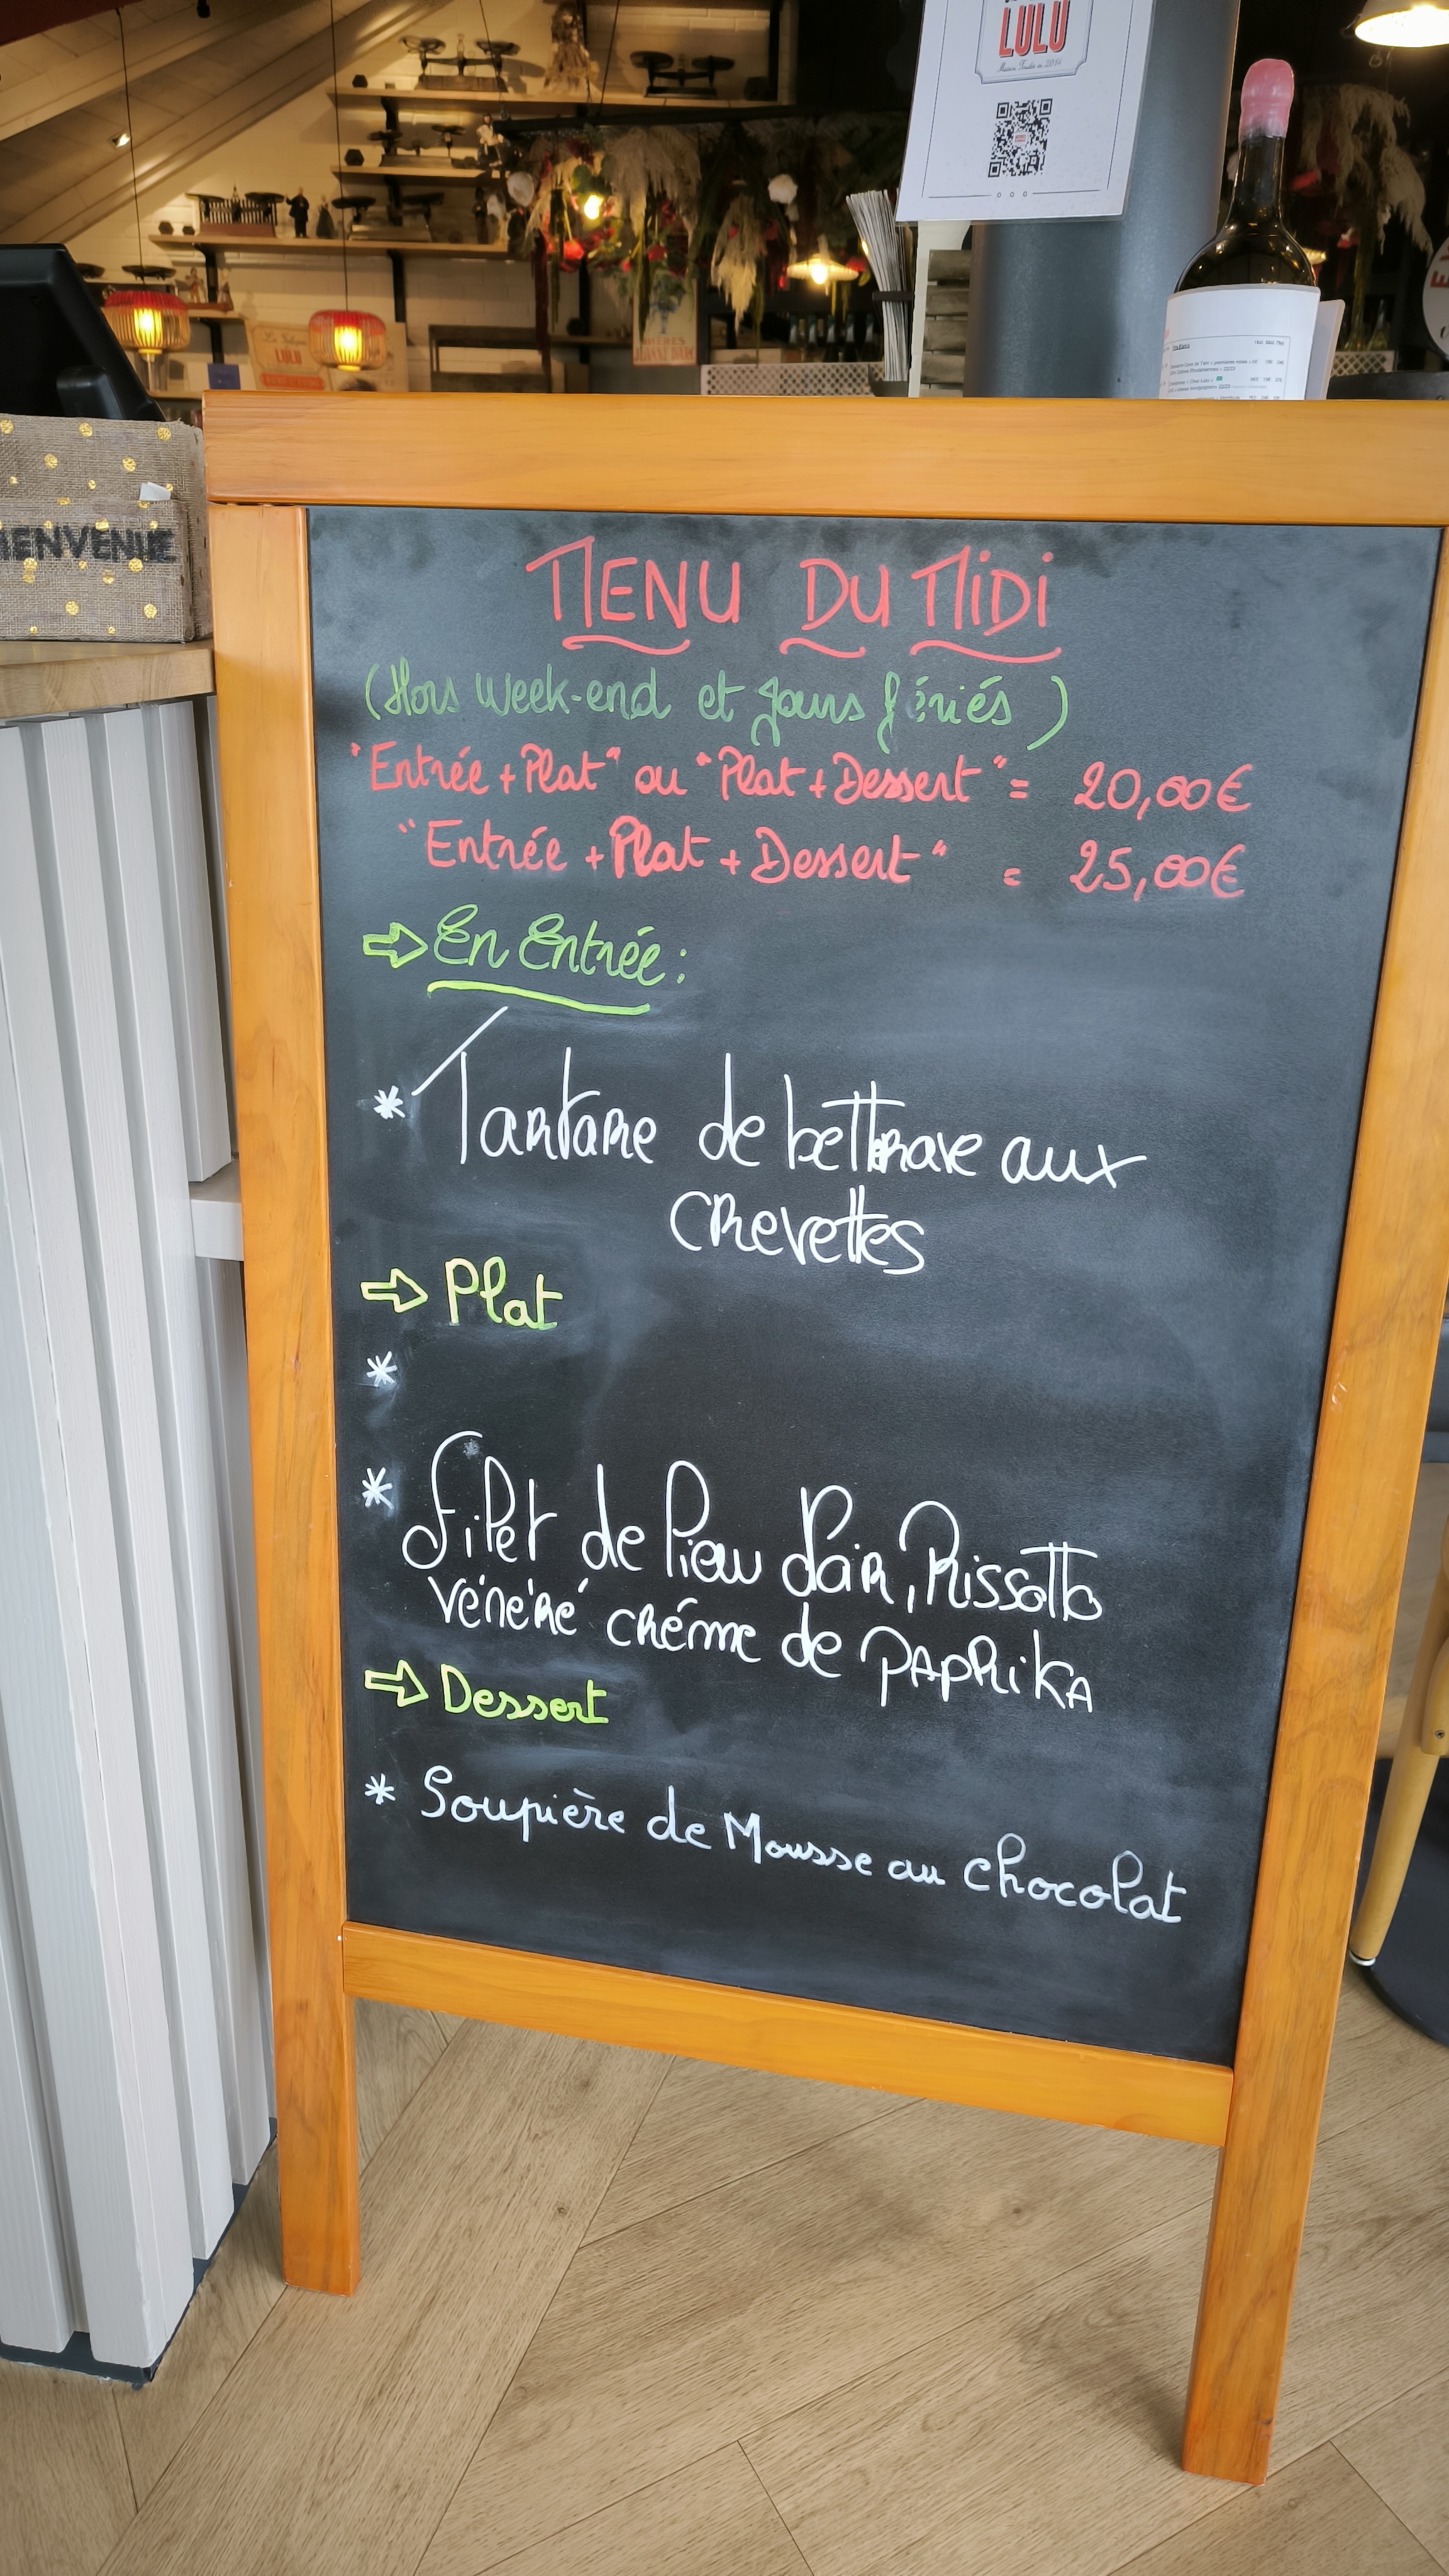 LULU
Maison Fondée en 2014
LULU
BIENVENUE
MENU DU MIDI
(Hors week-end et jours fériés)
"Entrée + Plat" ou "Plat + Dessert" = 20,00€
"Entrée + Plat + Dessert" = 25,00€
⇨ En Entrée :
* Tartare de betterave aux
crevettes
⇨ Plat
*
* Filet de lieu noir, Rissotto
vénéré créme de PAPRIKA
⇨ Dessert
* Soupière de Mousse au chocolat